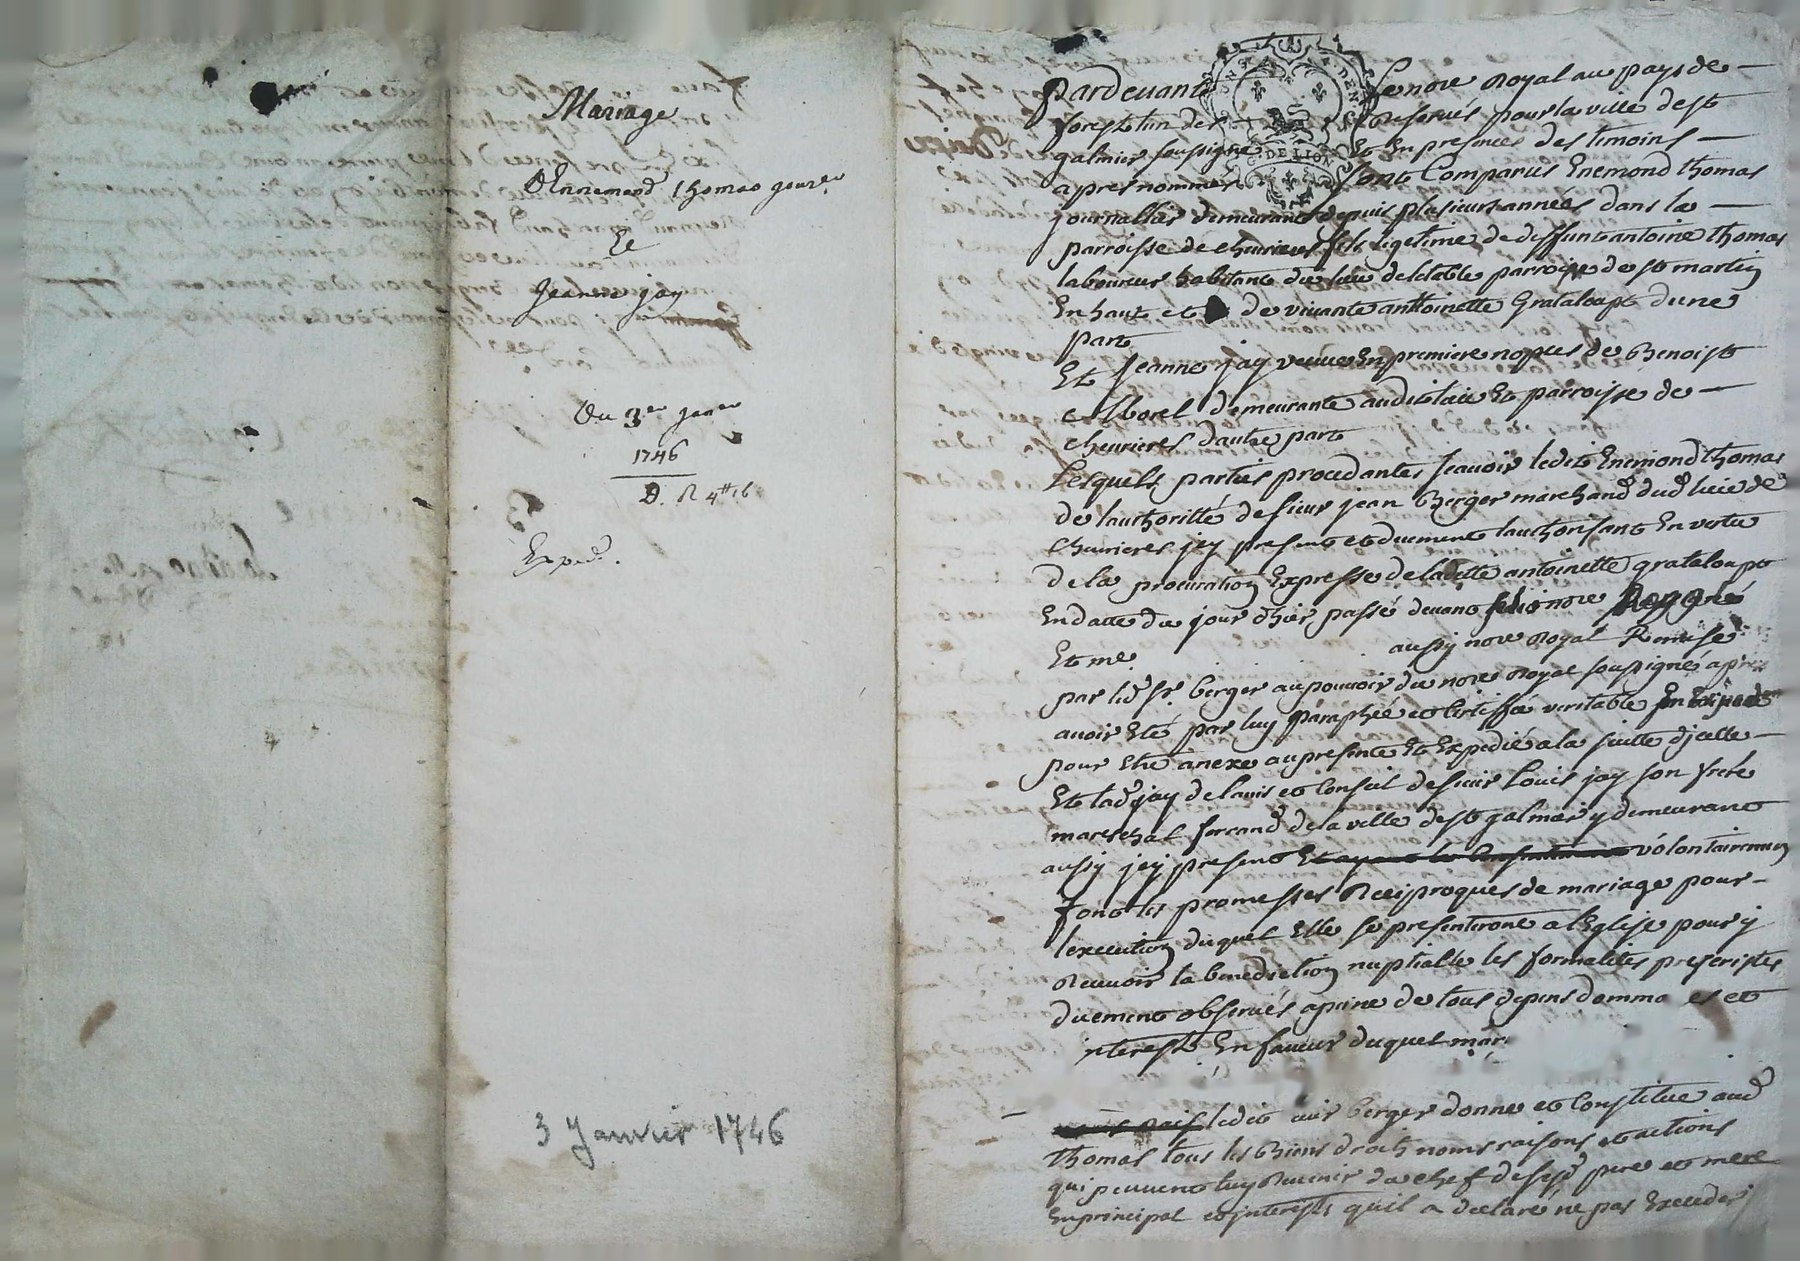 Mariage
D'Ennemond thomas
Et
Jeanne jay
Du 3er janer
1746
D. R 4tt 16
Exped.
3 Janvier 1746
Pardevant Le nore Royal au pays de
forest lun des Reservés pour la ville de st
galmier soussigné Et En presences des timoins
apres nommés Sont Comparus Enemond thomas
journallier demeurant depuis plusieurs années dans la
parroisse de cheurieres fils legetime de deffunt antoine thomas
laboureur habitant du lieu parroisse de st martin
En haut et de vivante anthoinette Grataloupt dune
part
Et Jeanne jay veuve En premiere nopces de Benoist
Morel demeurante audit lieu Et parroisse de
cheurieres dautre part
Lesquels parties procedantes scavoir ledit Enemond thomas
de lauthoritté de sieur jean Berger marchand dud lieu de
cheurieres jcy present et duement lauthorisant En vertu
de la procuration Expresse de ladette antoinette grataloupt
En datte du jour dhier, passé devant nore
Et me aussy nore Royal Remise
par led sr. berger au pouvoir du nore Royal soussigné apres
avoir Eté par luy paraphée et Certiffée veritable
pour Etre anexe au presente Et Expedié a la suitte djcelle
Et lad jay de lavis et Conseil de sieur Louis jay son frere
mareschal ferrand de la ville de st galmier y demeurant
aussy jcy present volontairement
font les promesses Reciproques de mariage pour
lexecution duquel Elle se presenteront a lEglise pour y
Recevoir la benediction nuptialle les formalités prescristes
duement observés a peine de tous depens domma es et
nterests En faveur duquel mar
ledit berger donne et Constitue aud
thomas tous les biens droits noms raisons et actions
qui peuvent luy Revenir du chef de sesd pere et mere
En principal et jnterests quil a declaré ne pas Exceder